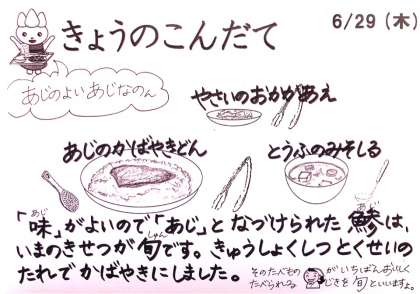 きょうのこんだて
6/29(木)
あじのよいあじなのん
やさいのおかかあえ
あじのかばやきどん
とうふのみそしる
「味」がよいので「あじ」と なづけられた 鯵は、
あじ
あじ
いまのきせつが旬です。きゅうしょくしつ とくせいの
しゅん
たれで かばやきにしました。
そのたべものがいちばんおいしく
たべられるじきを旬といいますよ。